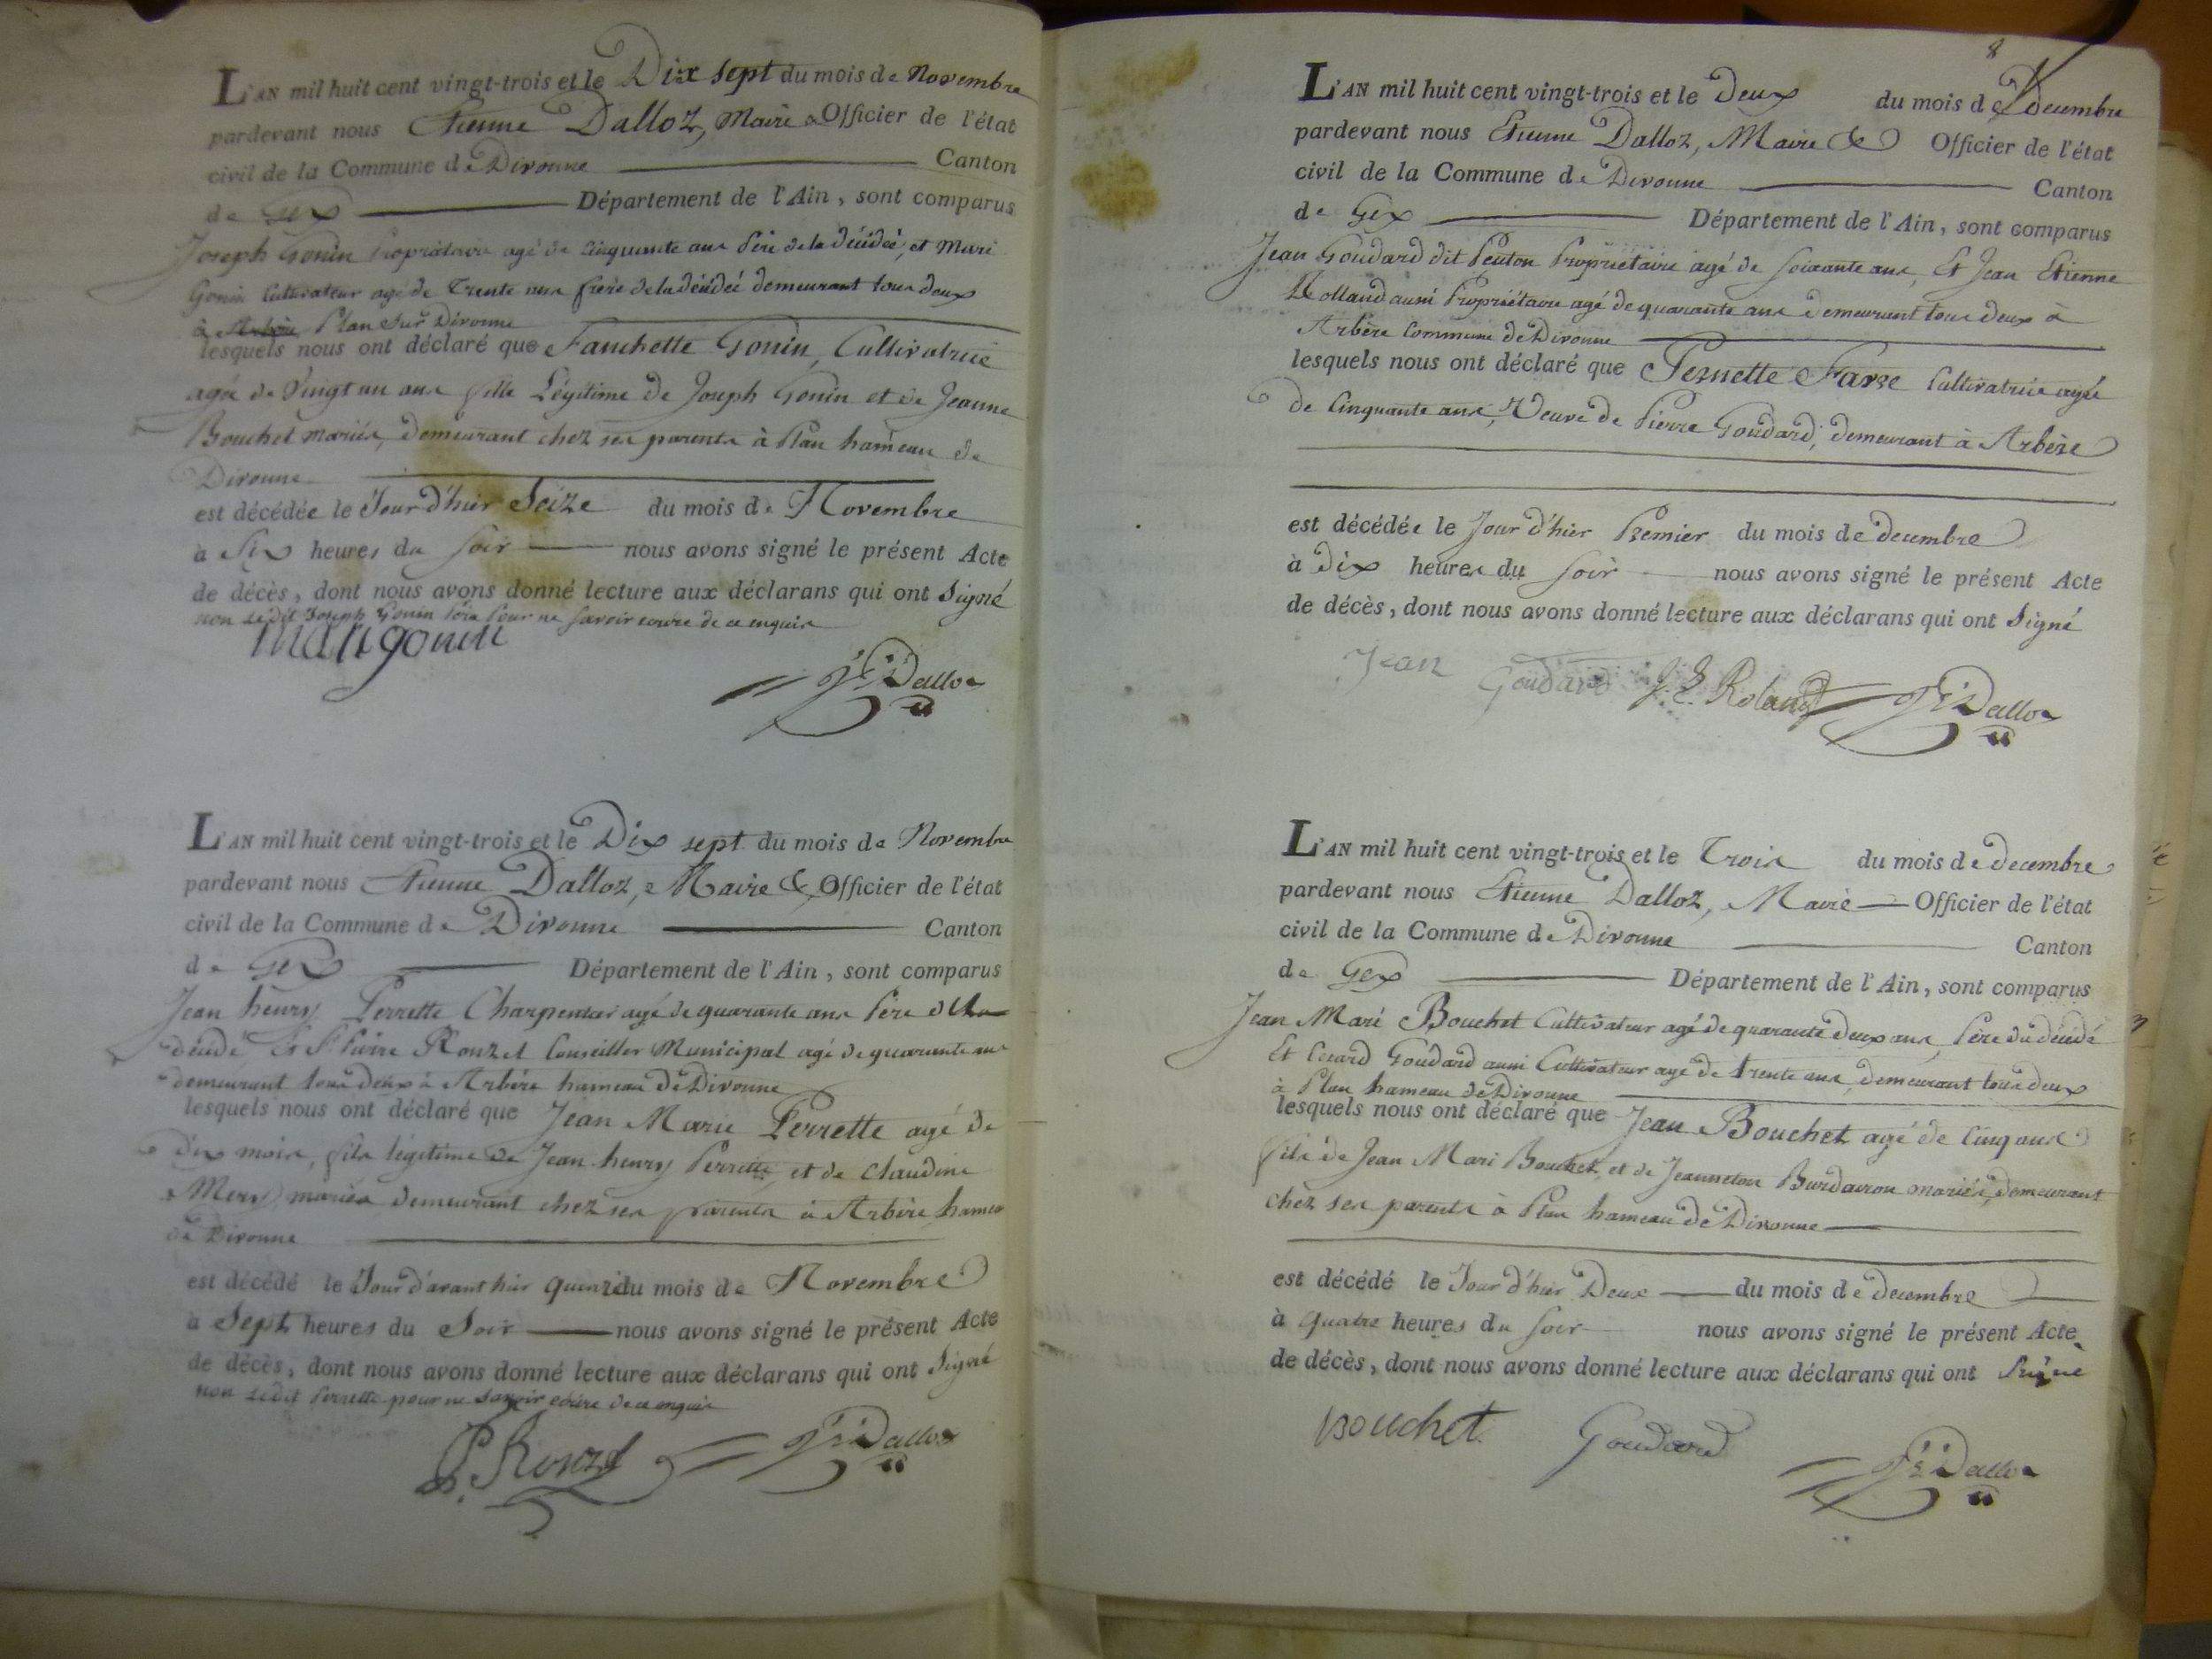 L'AN mil huit cent vingt-trois et le Dix sept du mois de Novembre
pardevant nous Etienne Dalloz, Maire & Officier de l'état
civil de la Commune de Divonne Canton
de Gex Département de l'Ain, sont comparus
Joseph Gonin Propriétaire agé de Cinquante ans Père de la décédée, et Marie
Gonin Cultivateur agé de Trente ans frère de la décédée demeurant tous deux
à Arbère Plan sur Divonne
lesquels nous ont déclaré que Fanchette Gonin, Cultivatrice
agée de Vingt un ans fille Légitime de Joseph Gonin et de Jeanne
Bouchet mariés, demeurant chez ses parents à Plan hameau de
Divonne
est décédée le Jour d'hier Seize du mois de Novembre
à Six heures du soir nous avons signé le présent Acte
de décès, dont nous avons donné lecture aux déclarans qui ont Signé
non ledit Joseph Gonin pour ne savoir écrire de ce enquis
Mari gonin
Dalloz
L'AN mil huit cent vingt-trois et le Dix sept du mois de Novembre
pardevant nous Etienne Dalloz, Maire & Officier de l'état
civil de la Commune de Divonne Canton
de Gex Département de l'Ain, sont comparus
Jean henry Perrette Charpentier agé de quarante ans Père du
décédé Et Sr. Pierre Rouzet Conseiller Municipal agé de quarante ans
demeurant tous deux à Arbère hameau de Divonne
lesquels nous ont déclaré que Jean Marie Perrette agé de
dix mois, fils légitime de Jean henry Perrette, et de Claudine
Mery mariés demeurant chez ses parents à Arbère hameau
de Divonne
est décédé le Jour d'avant hier quinze du mois de Novembre
à Sept heures du Soir nous avons signé le présent Acte
de décès, dont nous avons donné lecture aux déclarans qui ont Signé
non ledit Perrette pour ne savoir écrire de ce enquis
P. Rouzet Dalloz
8
L'AN mil huit cent vingt-trois et le Deux du mois de Decembre
pardevant nous Etienne Dalloz, Maire & Officier de l'état
civil de la Commune de Divonne Canton
de Gex Département de l'Ain, sont comparus
Jean Goudard dit Penton Propriétaire agé de soixante ans, Et Jean Etienne
Rolland aussi Propriétaire agé de quarante ans demeurant tous deux à
Arbère Commune de Divonne
lesquels nous ont déclaré que Pernette Favre Cultivatrice agée
de Cinquante ans, Veuve de Pierre Goudard, demeurant à Arbère
est décédée le Jour d'hier Premier du mois de decembre
à Dix heures du soir nous avons signé le présent Acte
de décès, dont nous avons donné lecture aux déclarans qui ont Signé
Jean Goudard J. E. Roland Dalloz
L'AN mil huit cent vingt-trois et le Trois du mois de decembre
pardevant nous Etienne Dalloz, Maire Officier de l'état
civil de la Commune de Divonne Canton
de Gex Département de l'Ain, sont comparus
Jean Mari Bouchet Cultivateur agé de quarante deux ans, Père du décédé
Et Cesard Goudard aussi Cultivateur agé de trente ans, demeurant tous deux
à Plan hameau de Divonne
lesquels nous ont déclaré que Jean Bouchet agé de Cinq ans
fils de Jean Mari Bouchet, et de Jeanneton Burdairon mariés, demeurant
chez ses parents à Plan hameau de Divonne
est décédé le Jour d'hier Deux du mois de decembre
à quatre heures du soir nous avons signé le présent Acte
de décès, dont nous avons donné lecture aux déclarans qui ont Signé
Bouchet Goudard Dalloz